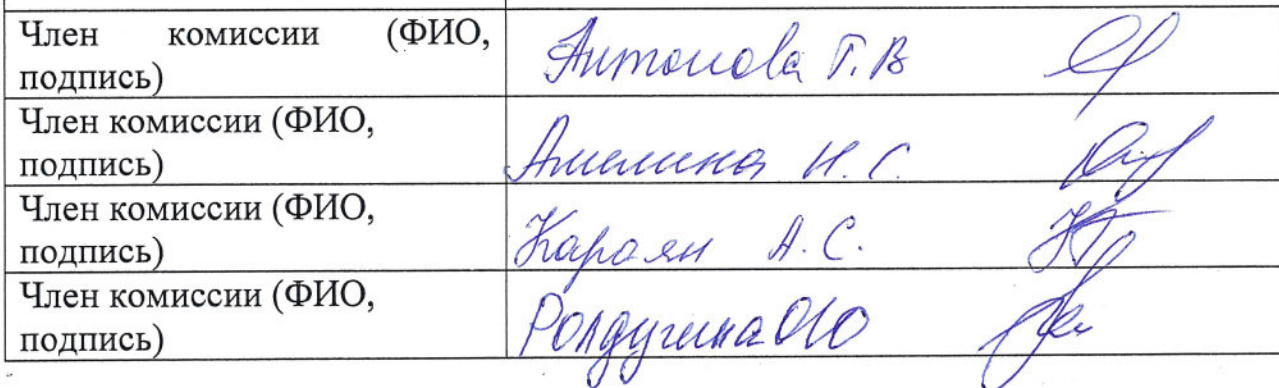 Член комиссии (ФИО,
подпись)
Антонова Г.В
Член комиссии (ФИО,
подпись)
Амелина Н.С.
Член комиссии (ФИО,
подпись)
Караян А.С.
Член комиссии (ФИО,
подпись)
Ролдугина ОЮ